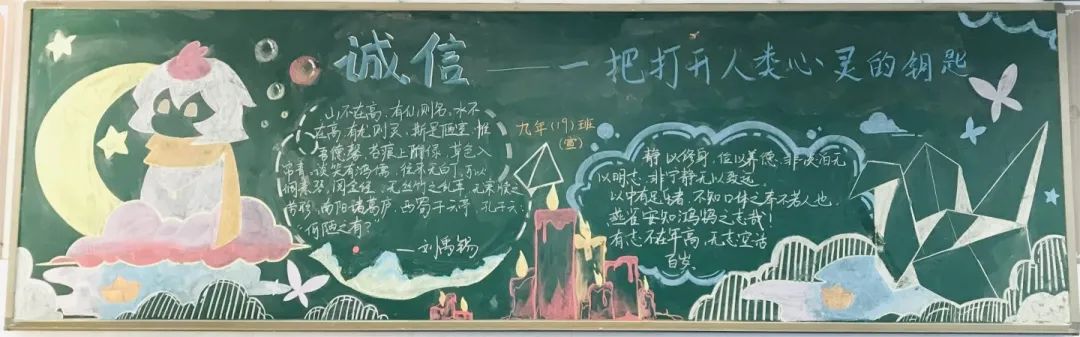 诚信——一把打开人类心灵的钥匙
山不在高,有仙则名,水不
在深,有龙则灵,斯是陋室,惟
吾德馨,苔痕上阶绿,草色入
帘青,谈笑有鸿儒,往来无白丁,可以
调素琴,阅金经,无丝竹之乱耳,无案牍之
劳形,南阳诸葛庐,西蜀子云亭,孔子云:
何陋之有?
——刘禹锡
九年(19)班
(宣)
静以修身,俭以养德,非淡泊无
以明志,非宁静无以致远
以中有足乐者,不知口体之奉不若人也,
燕雀安知鸿鹄之志哉!
有志不在年高,无志空活
百岁